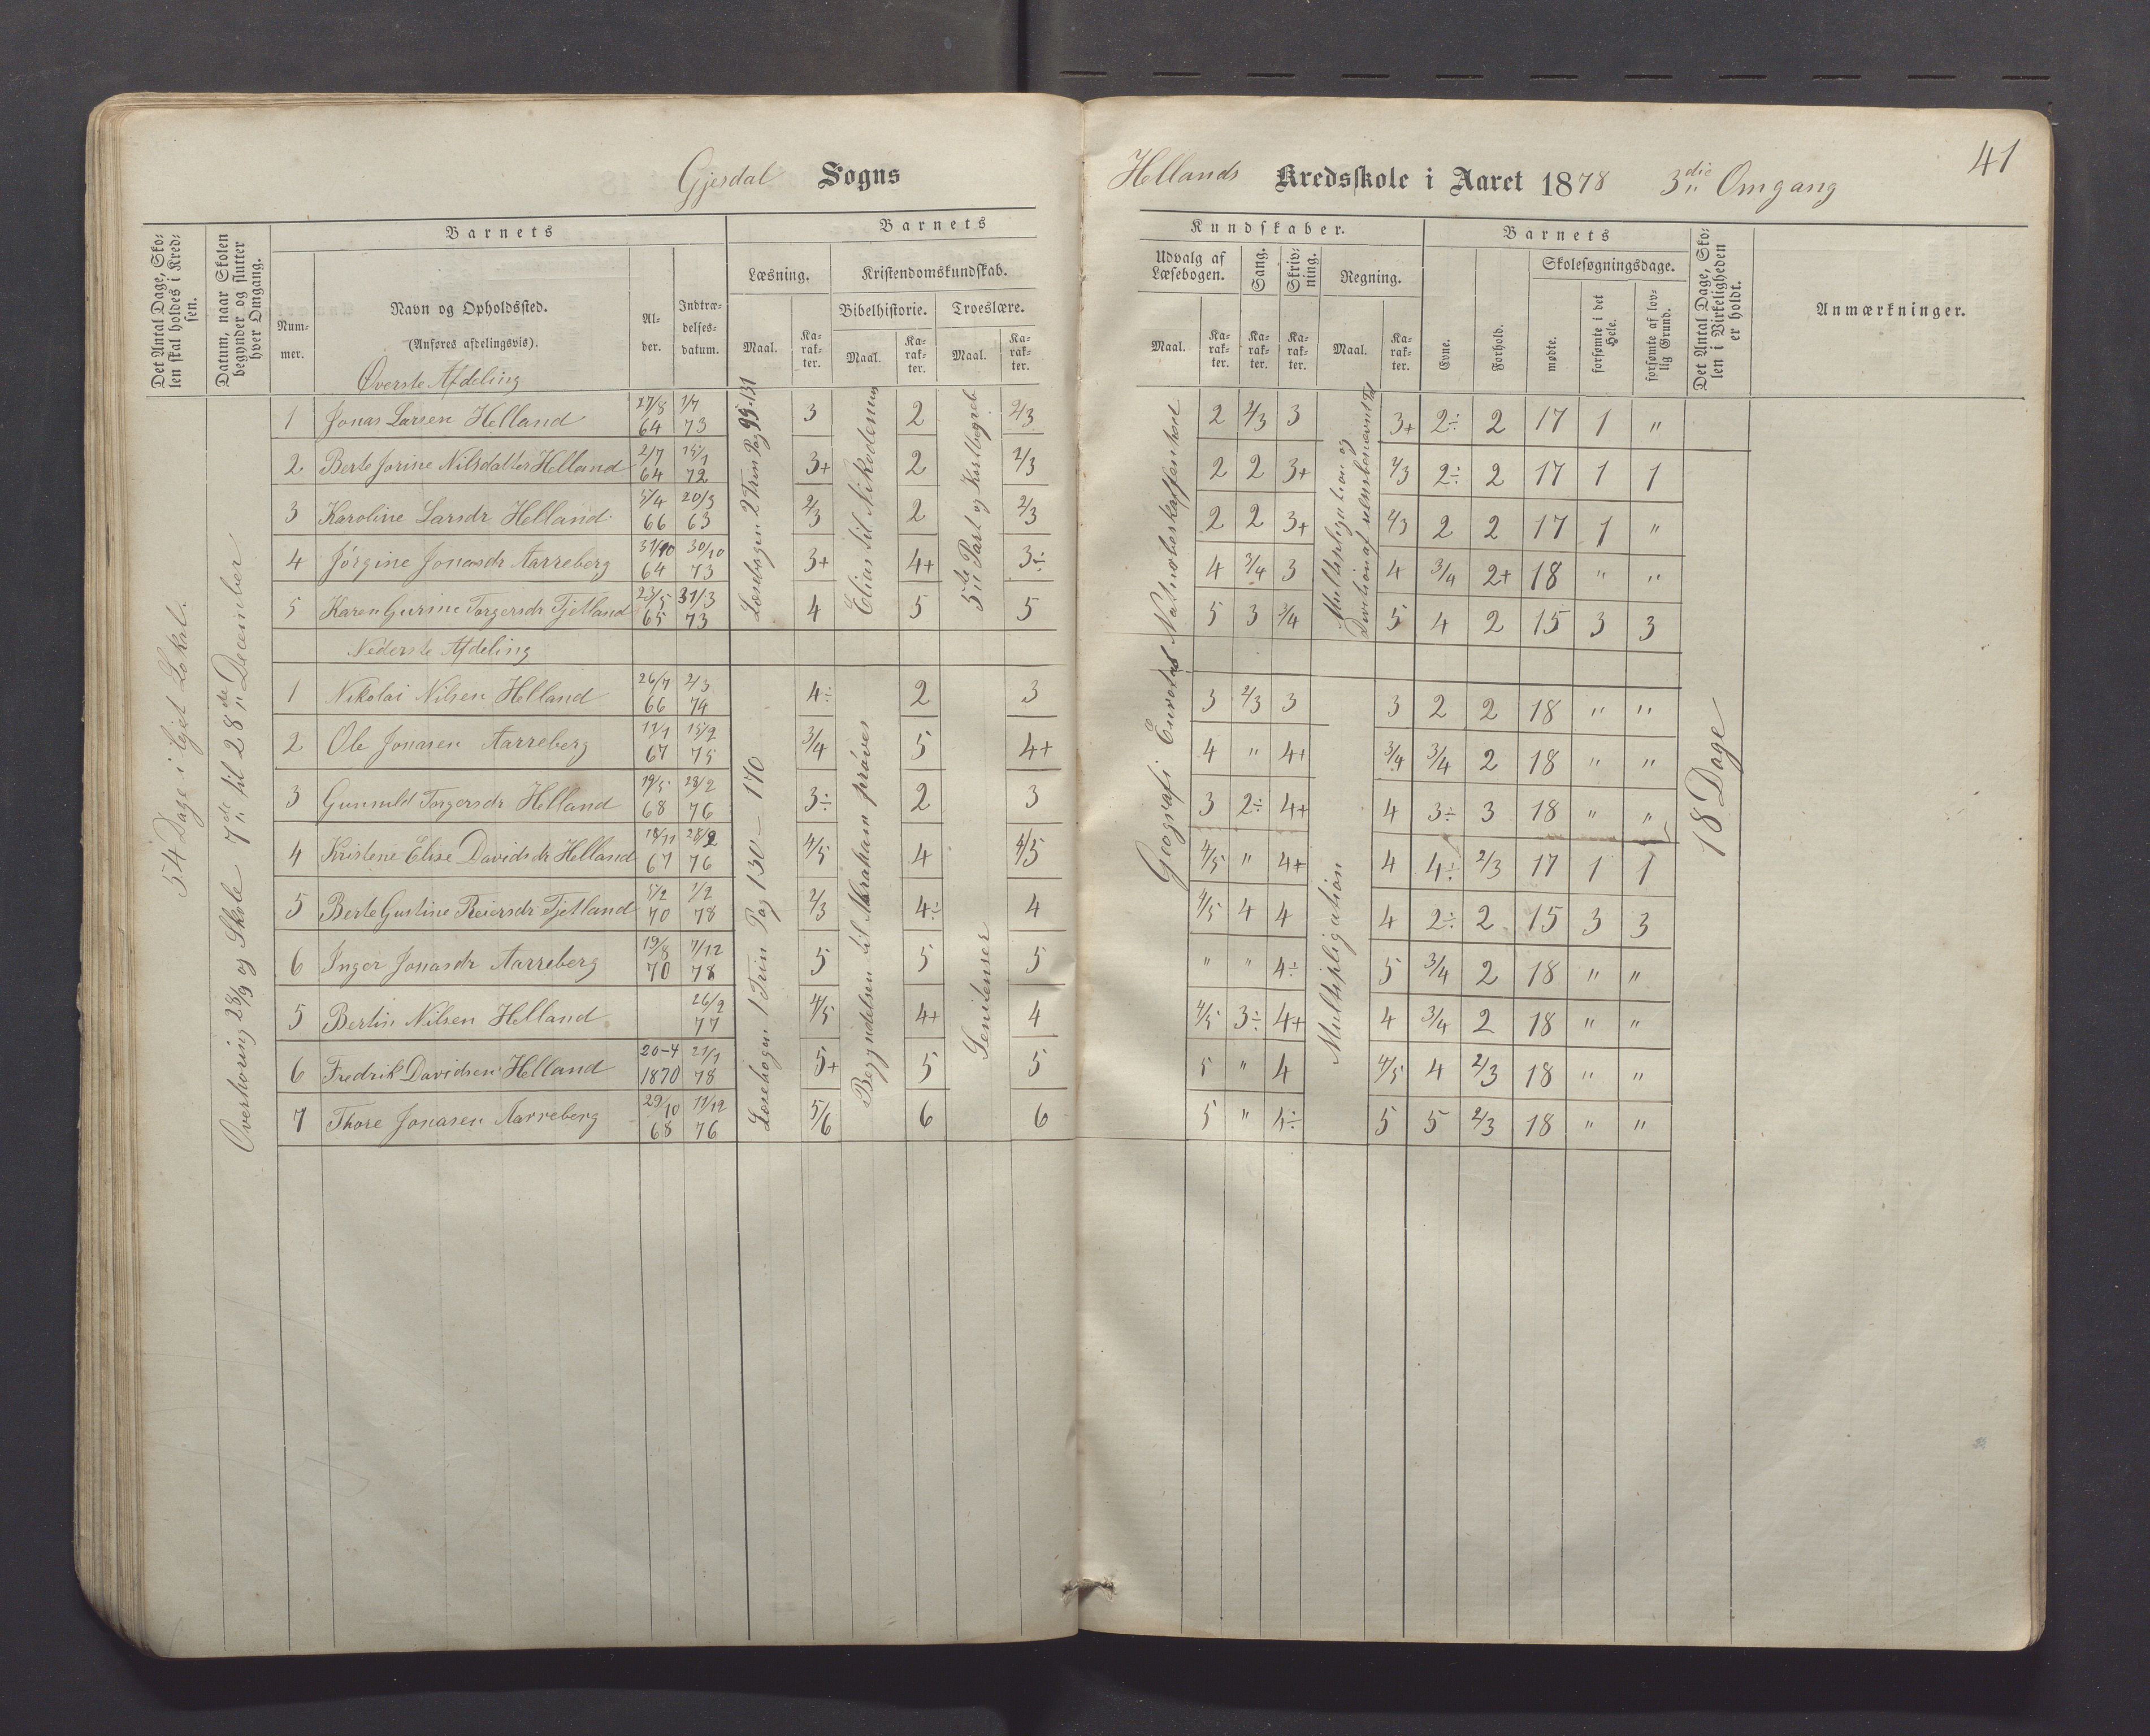 Gjesdal Sogns
Hellands Kredsskole i Aaret 1878 3die Omgang
41
Det Antal Dage, Skolen skal holdes i Kredsen.
Datum, naar Skolen begynder og slutter hver Omgang.
Barnets
Nummer.
Navn og Opholdssted.
(Anføres afdelingsvis).
Alder.
Indtrædelsesdatum.
Barnets
Læsning.
Maal.
Karakter.
Kristendomskundskab.
Bibelhistorie.
Maal.
Karakter.
Troeslære.
Maal.
Karakter.
Kundskaber.
Udvalg af Læsebogen.
Maal.
Karakter.
Sang.
Karakter.
Skrivning.
Karakter.
Regning.
Maal.
Karakter.
Barnets
Evne.
Forhold.
Skolesøgningsdage.
mødte.
forsømte i det Hele.
forsømte af lovlig Grund.
Det Antal Dage, Skolen i Virkeligheden er holdt.
Anmærkninger.
54 Dage i lejet Lokal.
Overhøring 28/9 og Skole 7de til 28de December
Læsebogen 2 Trin Pag 99-131
Elias til Nikodemus
5te Part og Kortbegreb
Geografi Europas Naturbeskaffenhed
Multipligation og
Division af uensbenævnt Tal
18 Dage
Øverste Afdeling
1 Jonas Larsen Helland 27/8 64 1/7 73 3 2 2/3 2 2/3 3 3+ 2÷ 2 17 1 "
2 Berte Jorine Nilsdatter Helland 2/7 64 15/1 72 3+ 2 2/3 2 2 3+ 2/3 2÷ 2 17 1 1
3 Karoline Larsdr Helland 5/4 66 20/3 63 2/3 2 2/3 2 2 3+ 2/3 2 2 17 1 "
4 Jørgine Jonasdr Aarreberg 31/10 64 30/10 73 3+ 4+ 3÷ 4 3/4 3 4 3/4 2+ 18 " "
5 Karen Gurine Torgersdr Tjetland 23/5 65 31/3 73 4 5 5 5 3 3/4 5 4 2 15 3 3
Nederste Afdeling
Læsebogen 1 Trin Pag 130 - 170
Begyndelsen til Abraham prøves
Senitenser
Multipligation
1 Nikolai Nilsen Helland 26/7 66 2/3 74 4÷ 2 3 3 2/3 3 3 2 2 18 " "
2 Ole Jonasen Aarreberg 11/1 67 15/2 75 3/4 5 4+ 4 " 4+ 3/4 3/4 2 18 " "
3 Gunnuld Torgersdr Helland 19/5 68 28/2 76 3÷ 2 3 3 2÷ 4+ 4 3÷ 3 18 " "
4 Kristene Elise Davidsdr Helland 18/11 67 28/2 76 4/5 4 4/5 4/5 " 4+ 4 4÷ 2/3 17 1 1
5 Berte Gustine Reiersdr Tjetland 5/2 70 1/2 78 2/3 4÷ 4 4/5 4 4 4 2÷ 2 15 3 3
6 Inger Jonasdr Aarreberg 19/8 70 7/12 78 5 5 5 " " 4÷ 5 3/4 2 18 " "
5 Bertin Nilsen Helland 26/2 77 4/5 4+ 4 4/5 3÷ 4+ 4 3/4 2 18 " "
6 Fredrik Davidsen Helland 20-4 1870 21/1 78 5+ 5 5 5 " 4 4/5 4 2/3 18 " "
7 Thore Jonasen Aarreberg 29/10 68 11/12 76 5/6 6 6 5 " 4÷ 5 5 2/3 18 " "